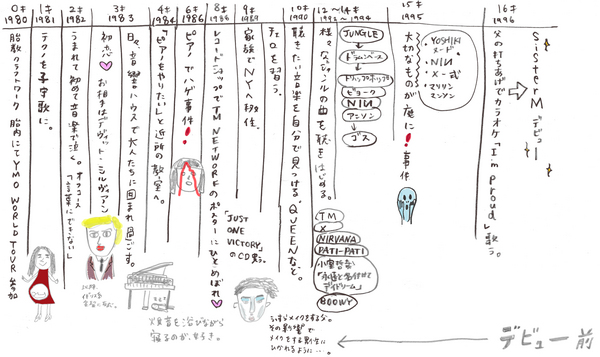 0才
1980
胎教クラフトワーク 胎内にてYMO WORLD TOUR参加
1才
1981
テクノを子守歌に。
2才
1982
うまれて初めて音楽で泣く。
オフコース
「言葉にできない」
3才
1983
初恋♡お相手はデヴィット・シルヴィアン
日々、音響ハウスで大人たちに囲まれ過ごす。
4才
1984
「ピアノをやりたい」と近所の教室へ。
大音を浴びながら
寝るのが、好き。
6才
1986
ピアノでハゲ事件!
8才
1988
レコードショップでTM NETWORKのポスターにひとめぼれ♡
9才
1989
家族でNYへ移住。
JUST
ONE
VICTORY
のCD買う。
チェロを習う。
10才
1990
聴きたい音楽を自分で見つける。QUEENなど。
12〜14才
1992〜1994
様々なジャンルの曲を聴きはじめる。
JUNGLE
ドラムンベース
トリップホップ
ビョーク
NIN
アニソン
ゴス
TM
X
NIRVANA
PATI-PATI
小室哲哉
「永遠と名付けて
デイドリーム」
BOOWY
うっすらメイクをするが。
その影響で
メイクをする男性に
ひかれるように…。
15才
1995
大切なものが庭に!事件
・YOSHIKI
ヌード
・NIN
・X一式
・マリリン
マンソン
16才
1996
父の打ちあげでカラオケ「I'm proud」歌う。
SiSterM デビュー
デビュー前